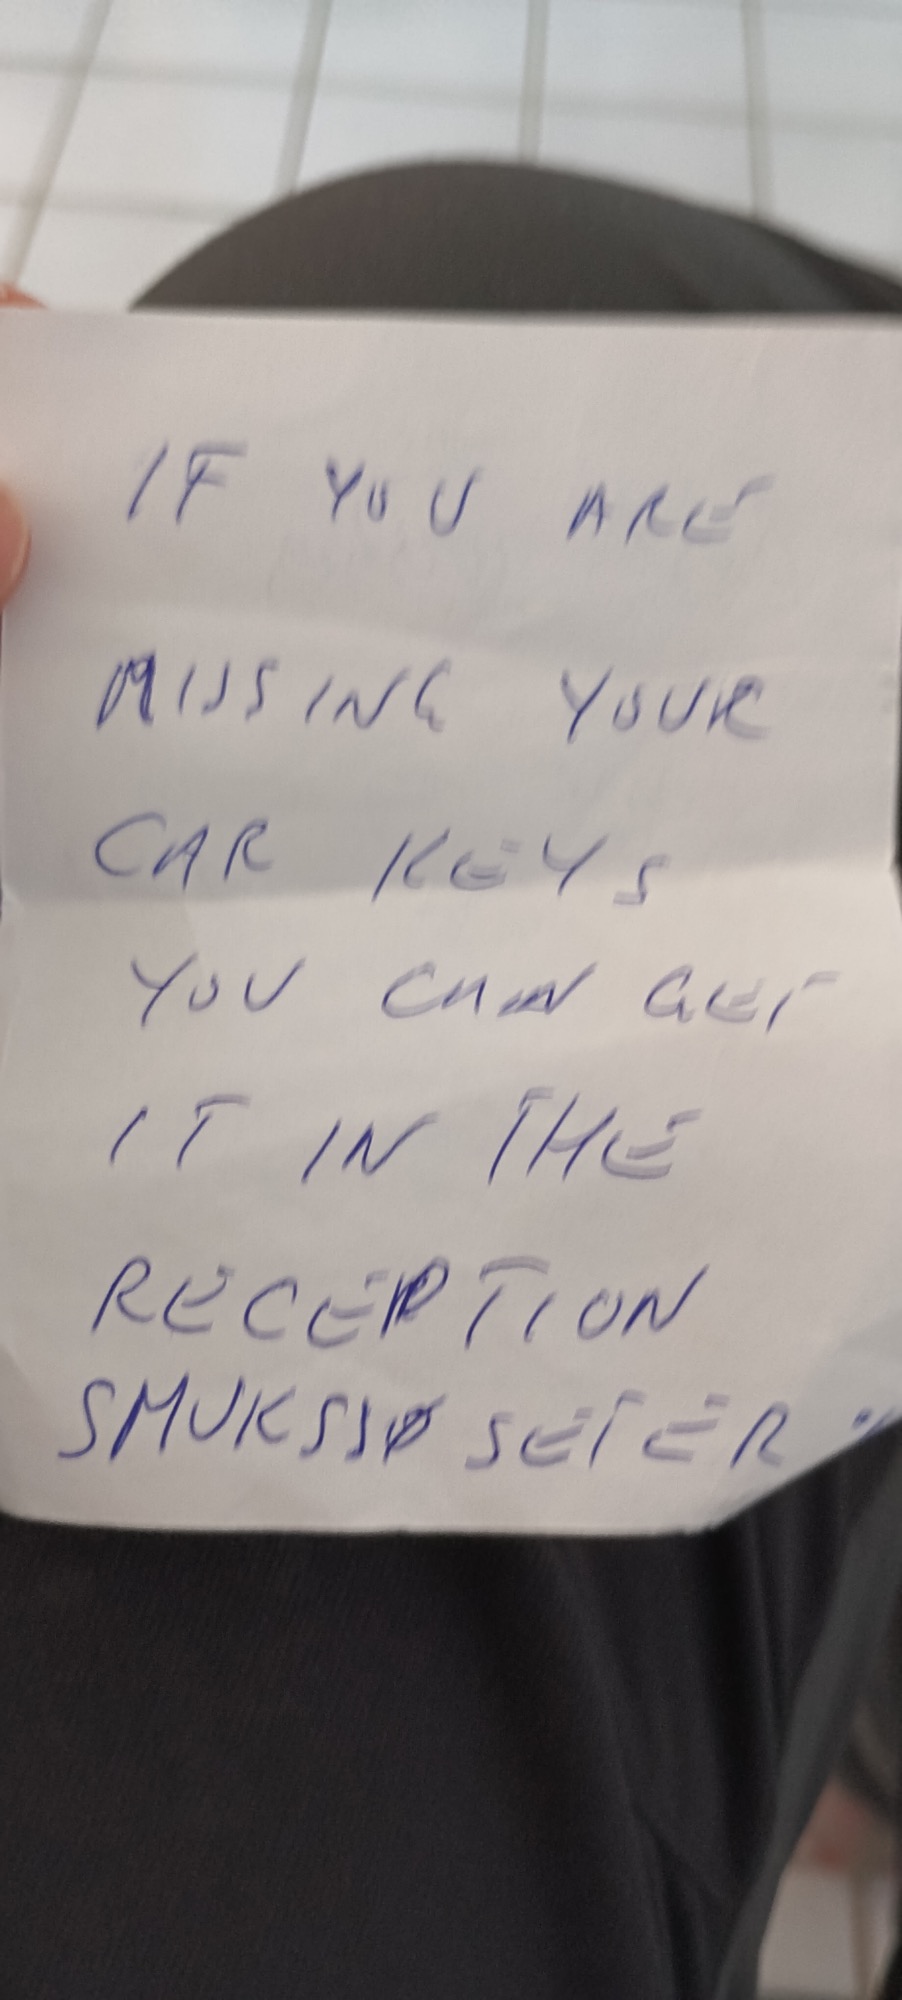 IF YOU ARE
MISSING YOUR
CAR KEYS
YOU CAN GET
IT IN THE
RECEPTION
SMUKSJØSETER